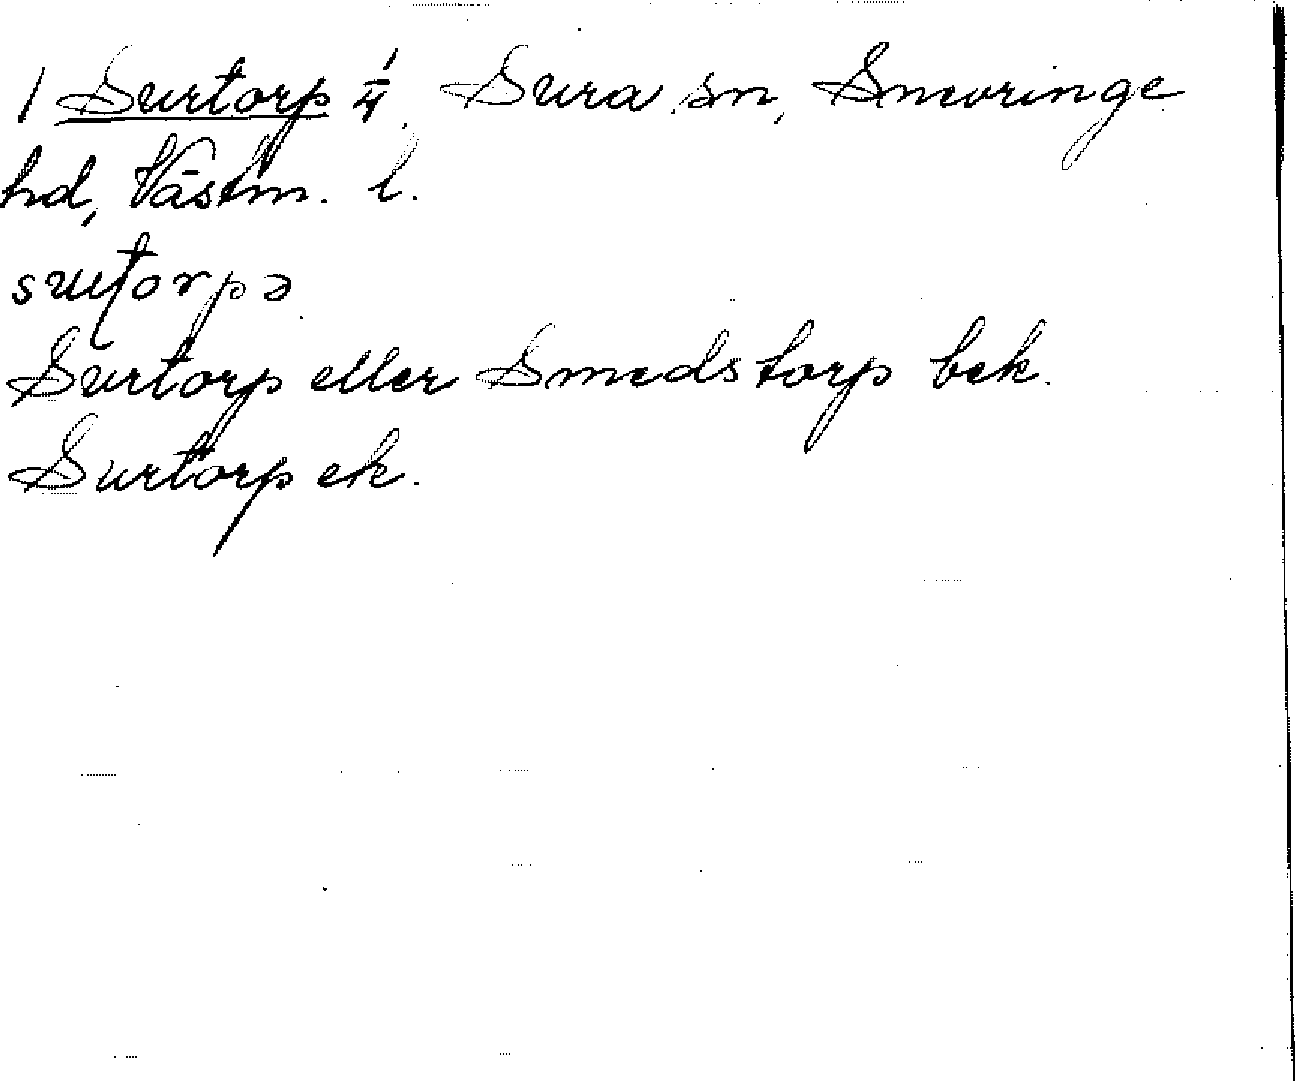 1 Surtorp 1/4, Sura sn, Snevringe
hd, Västm. l.
suʈorpə
Surtorp eller Smedstorp bek.
Surtorp ek.